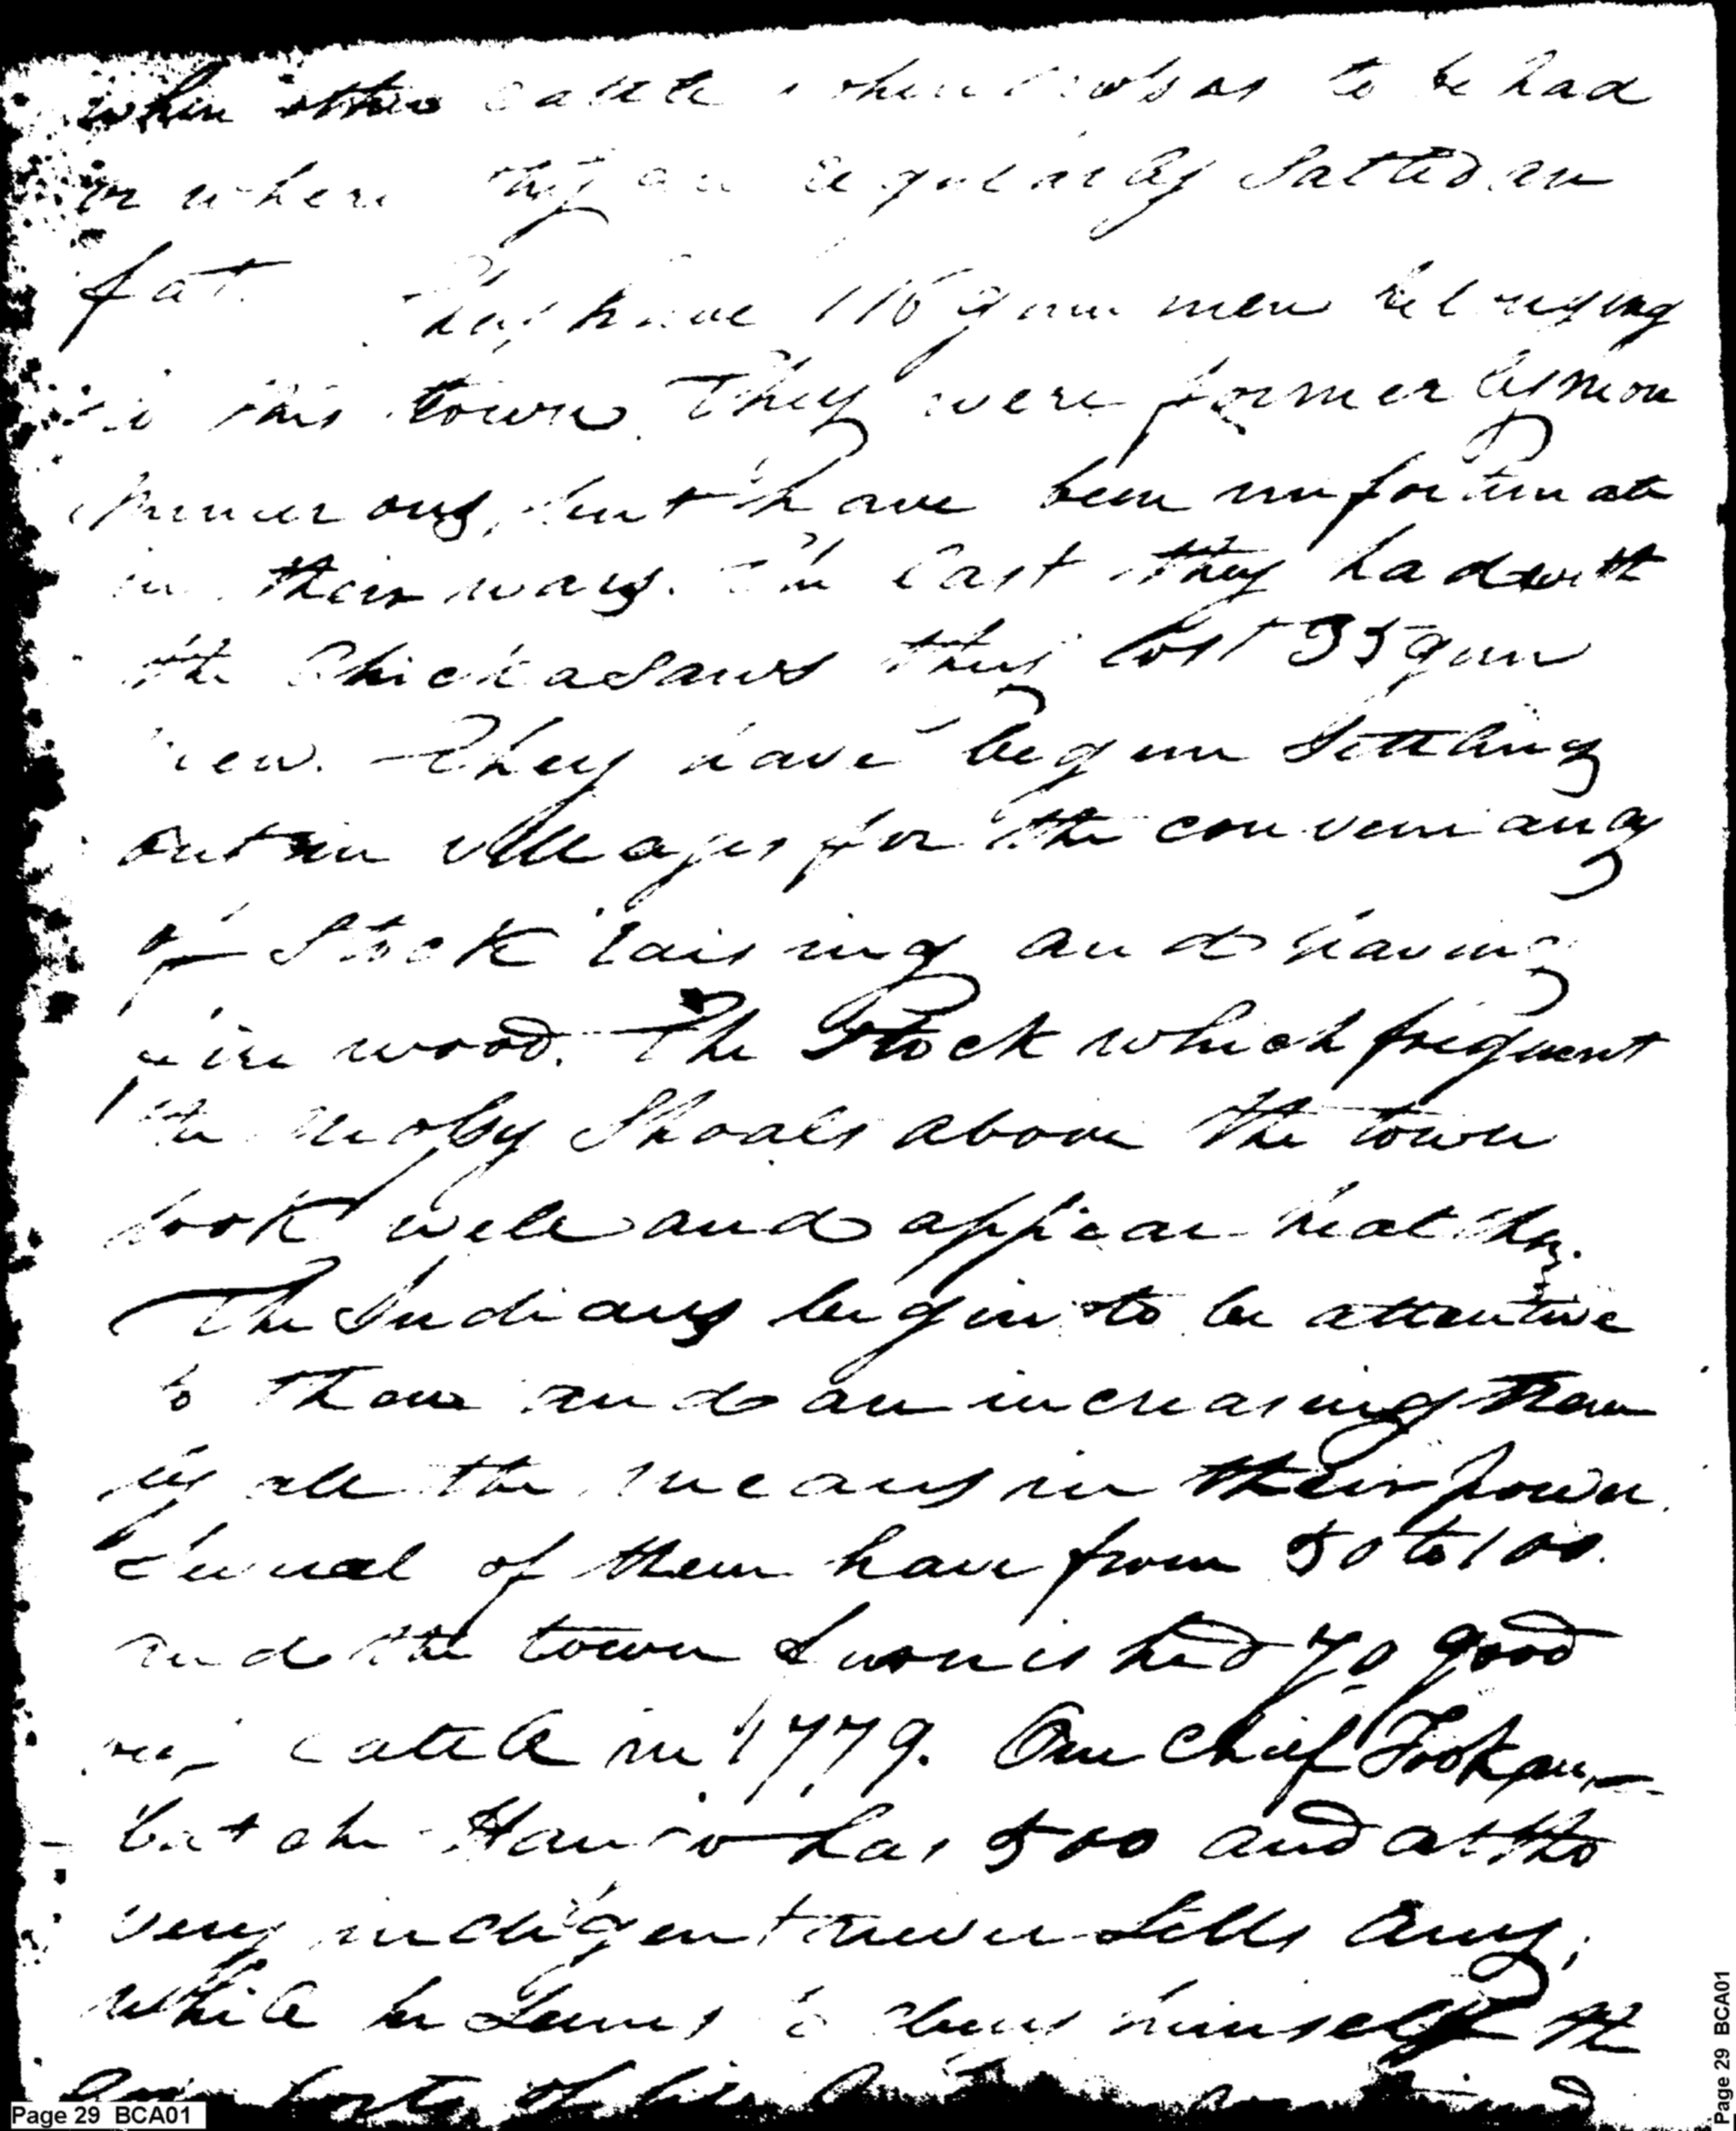 when other cattle when moss to be had
or where they are regularly Salted are
fat. They have 116 gun men belonging
to this town. They were formerly more
numerous, but have been unfortunate
in their wars. In last they had with
the Chickasaws they lost 35 gun
men. They have begun Settling
out in villages for the conveniancy
of Stock raising and having
fire wood. The Stock which frequent
the mossy Shoals above the town
look well and appear healthy.
The Indians begin to be attentive
to them and are increasing them
by all the means in their power.
Several of them have from 50 to 100.
and the town furnished 70 good
cattle in 1779. One chief Tookau-
batche Haujo has 500 and altho
very indigent never Sells any;
while he Seems to deny himself the
of his
Page 29 BCA01
Page 29 BCA01